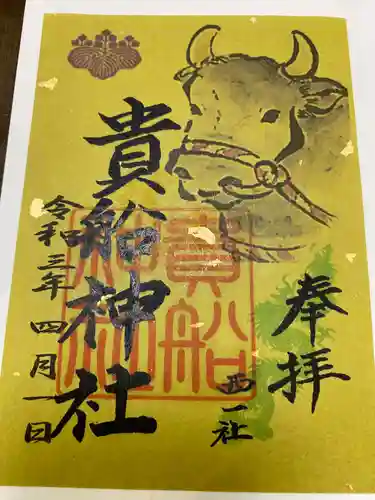 奉拝
西一社
貴船神社
貴船神社
令和三年四月一日